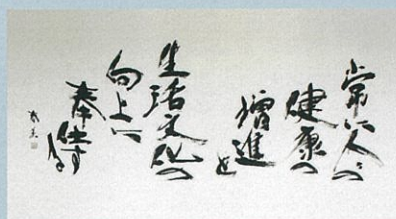 常に人々の
健康の
増進と
生活文化の
向上に
奉仕する